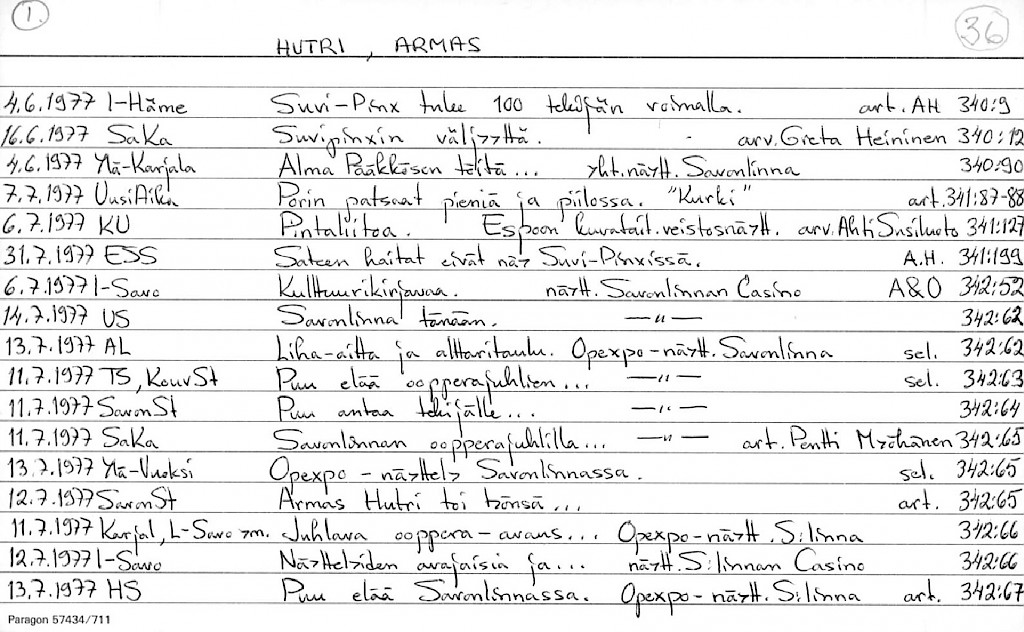 1.
36
HUTRI, ARMAS
4.6.1977 I-Häme Suvi-Pinx tulee 100 tekijän voimalla. art. AH 340:9
16.6.1977 SaKa Suvipinxin väljyyttä. - arv. Greta Heininen 340:12
4.6.1977 Ylä-Karjala Alma Pääkkösen töitä... yht.näytt. Savonlinna 340:90
7.7.1977 UusiAika Porin patsaat pieniä ja piilossa. "Kurki" art. 341:87-88
6.7.1977 KU Pintaliitoa. Espoon kuvatait.veistosnäytt. arv. Ahti Susiluoto 341:127
31.7.1977 ESS Sateen haitat eivät näy Suvi-Pinxissä. A.H. 341:199
6.7.1977 I-Savo Kulttuurikirjavaa. näytt. Savonlinnan Casino A&O 342:52
14.7.1977 US Savonlinna tänään. —"— 342:62
13.7.1977 AL Liha-aitta ja alttaritaulu. Opexpo-näytt. Savonlinna sel. 342:62
11.7.1977 TS, KouvSt Puu elää oopperajuhlien... —"— sel. 342:63
11.7.1977 SavonSt Puu antaa tekijälle... —"— 342:64
11.7.1977 SaKa Savonlinnan oopperajuhlilla... —"— art. Pentti Myöhänen 342:65
13.7.1977 Ylä-Vuoksi Opexpo - näyttely Savonlinnassa. sel. 342:65
12.7.1977 SavonSt Armas Hutri toi työnsä... art. 342:65
11.7.1977 Karjal, L-Savo ym. Juhlava ooppera-avaus... Opexpo-näytt. S:linna 342:66
12.7.1977 I-Savo Näyttelyiden avajaisia ja... näytt. S:linnan Casino 342:66
13.7.1977 HS Puu elää Savonlinnassa. Opexpo-näytt. S:linna art. 342:67
Paragon 57434/711